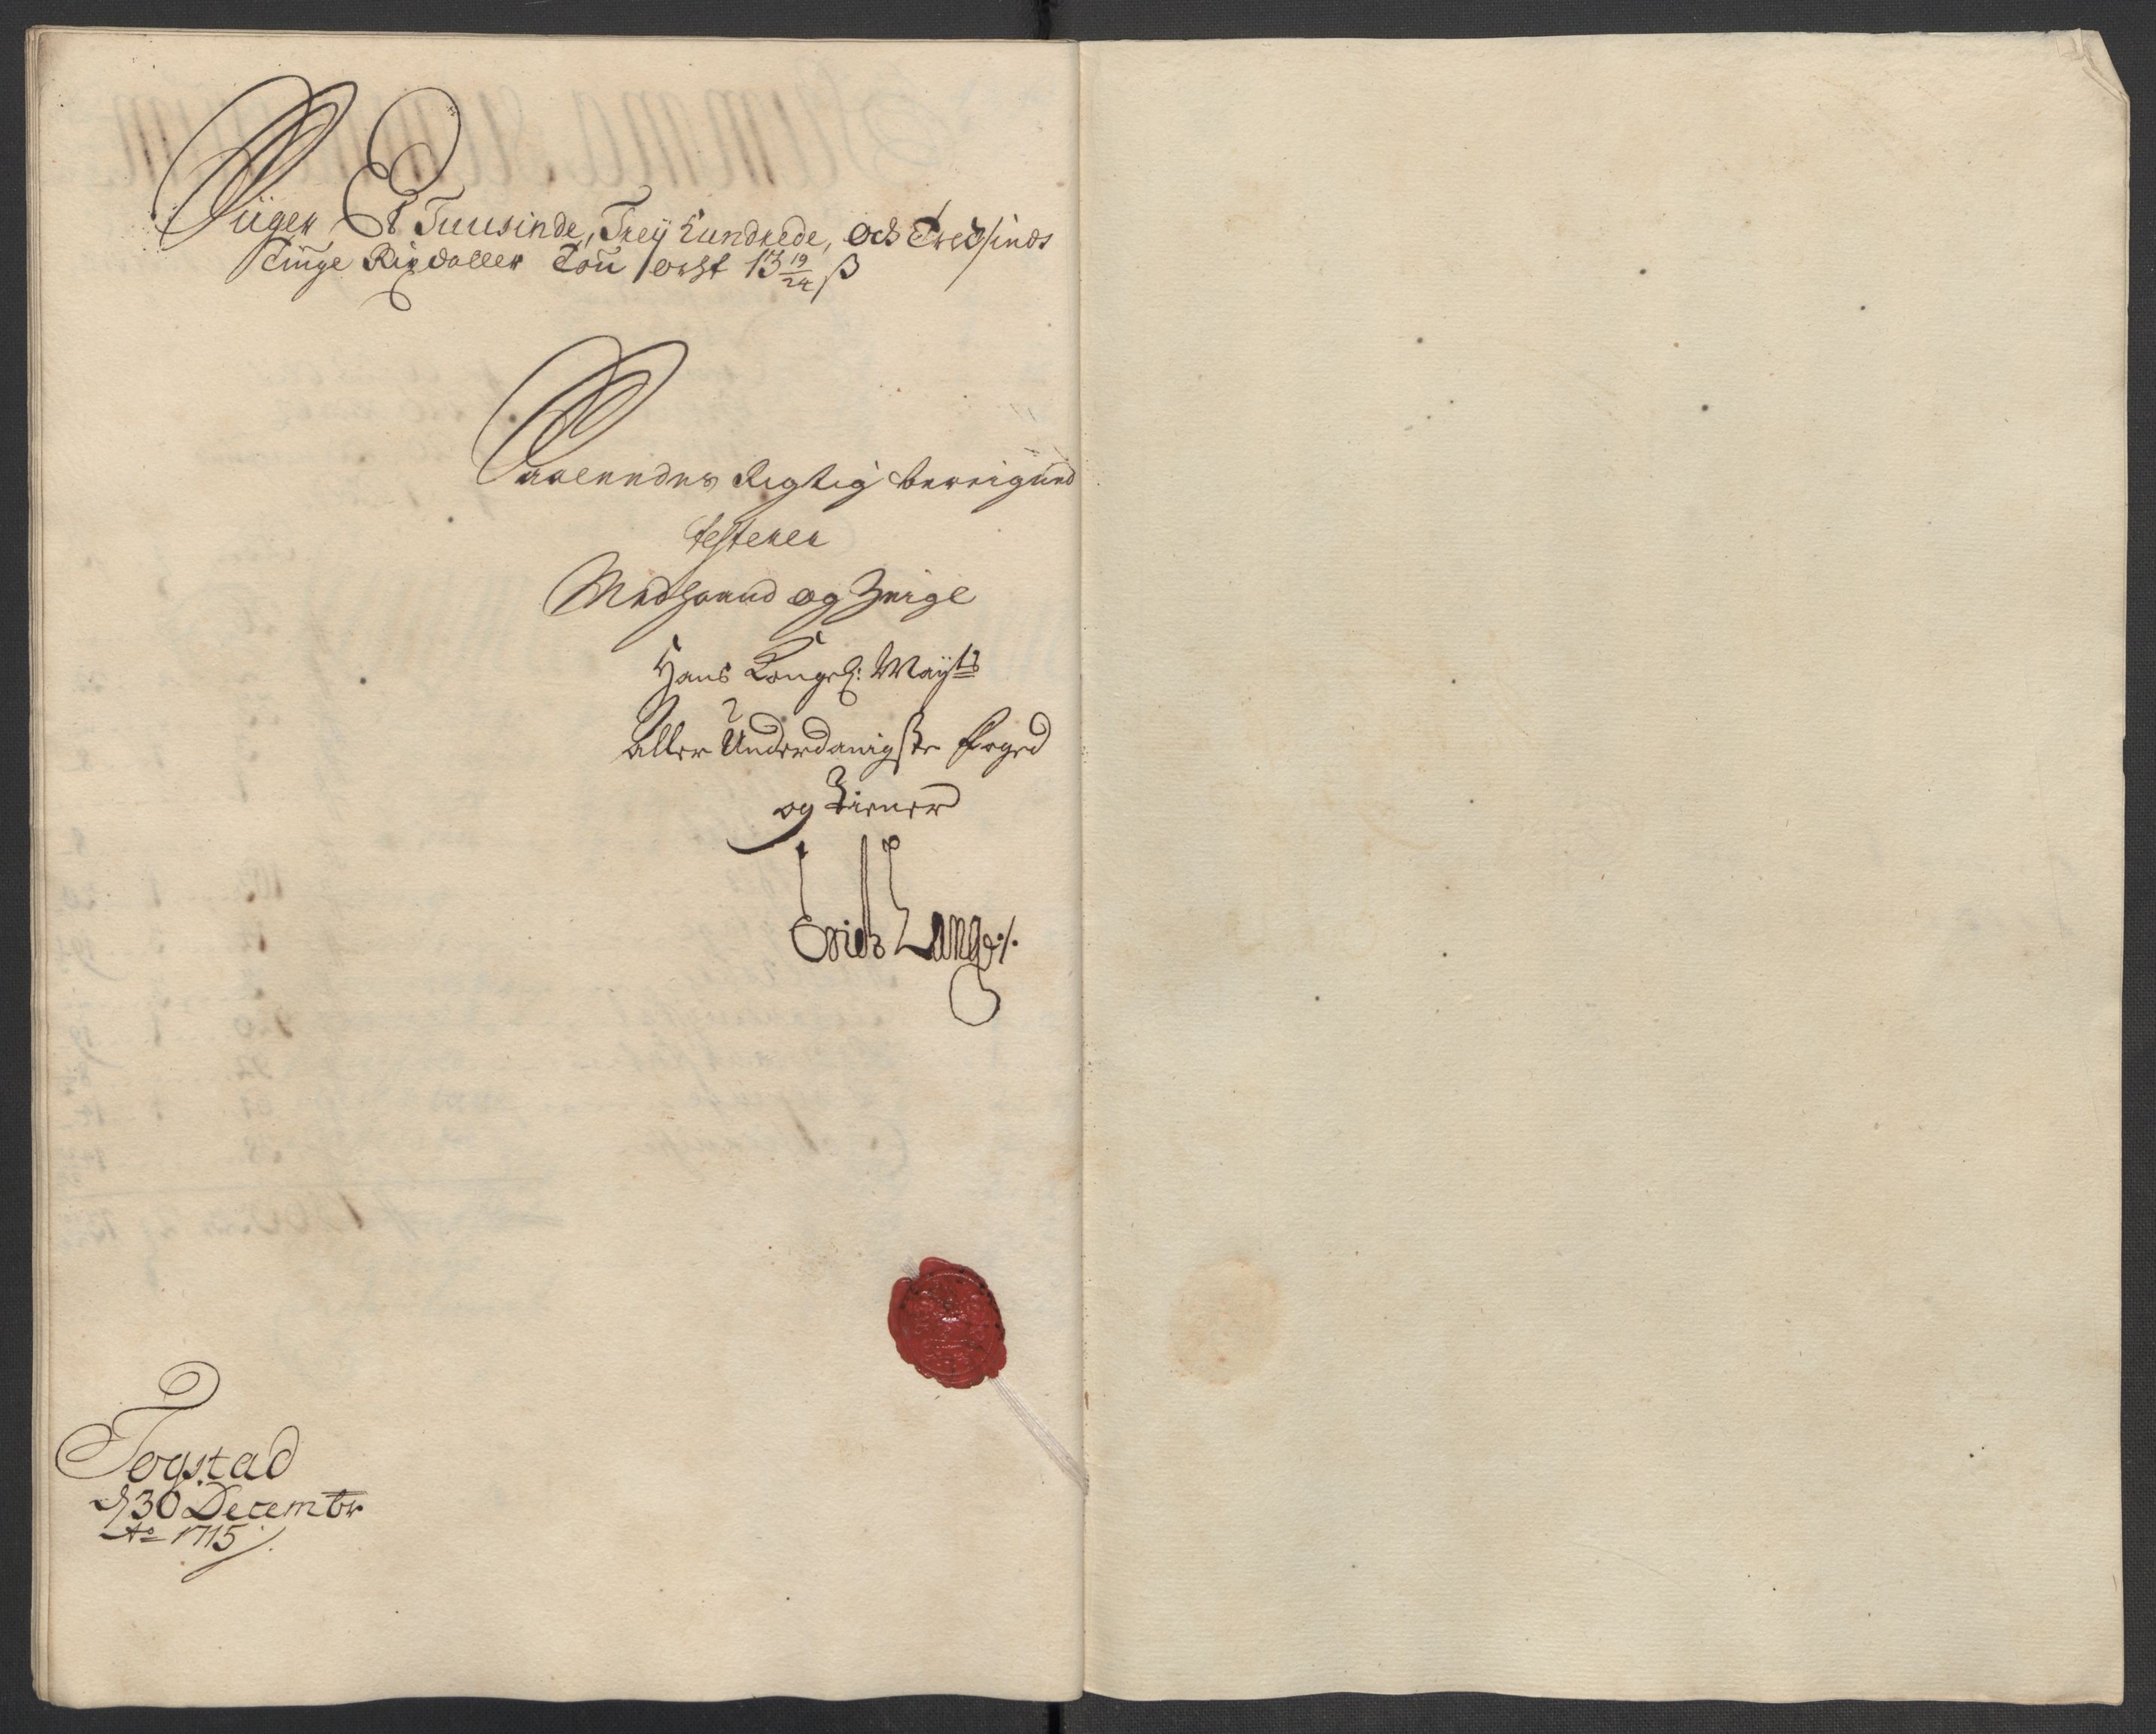 Siiger Et Tuusinde, Trey hundrede, och Tredsinds
Tiuge Rixdaller Tou ortt 13 19/24 ß
Saaledes Rigtig bereigned
testerer
Med haand og Zeigl
Hans Kongl: Mayts
Aller Underdanigste foged
og Tiener
Erich Lange ./.
Togstad
d 30 Decembr
Ao 1715 ./.